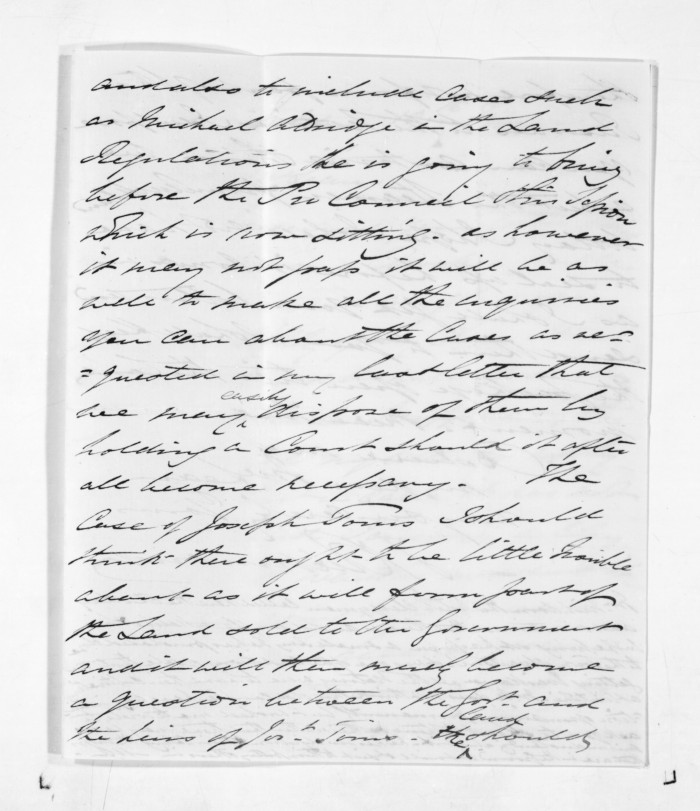 and also to include cases such
as Michael Aldridge in the Land
Regulations he is going to bring
before the Pro Council this Session
which is now sitting. as however
it may not pass it will be as
well to make all the inquiries
you can about the Cases as re=
=quested in my last letter that
we may easily dispose of them by
holding a Court should it after
all become necessary. The
Case of Joseph Toms I should
think there ought to be little trouble
about as it will form part of
the Land sold to the Government
and it will then merely become
a question between the Govt. and
the heirs of Josh. Toms. the land should